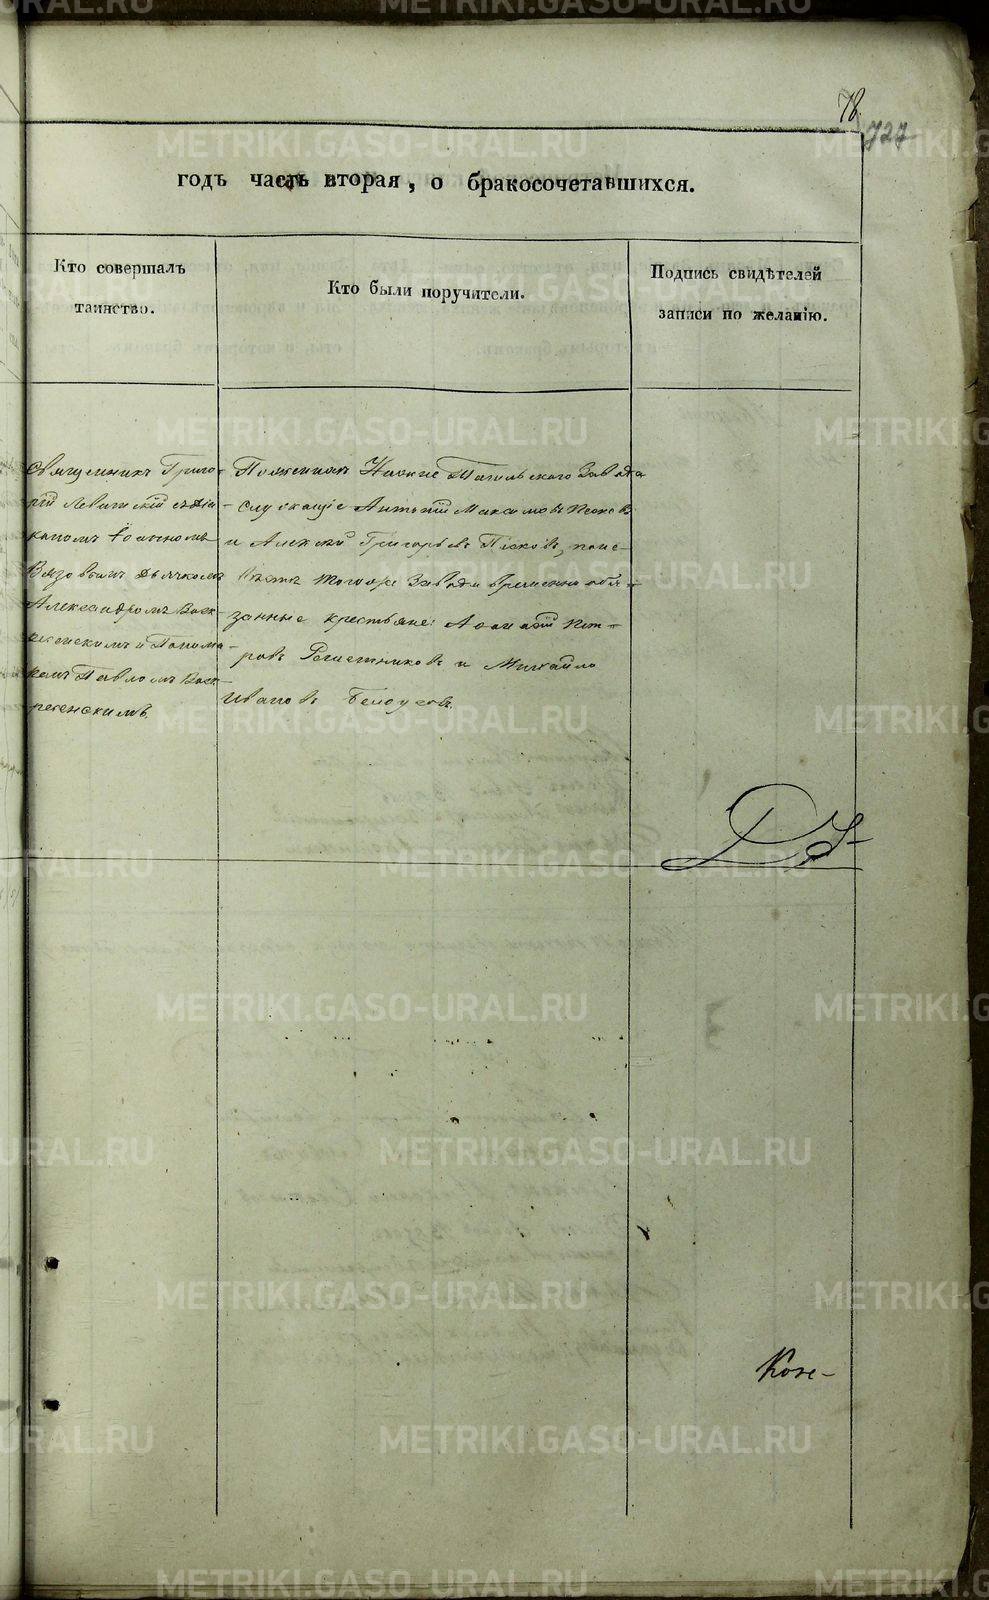 78
727
годъ часть вторая, о бракосочетавшихся.
Кто совершалъ
таинство.
Кто были поручители.
Подпись свидѣтелей
записи по желанію.
Священникъ Григо-
рій Левитскій съ Діа-
кономъ
Вязовымъ Дьячкомъ
Александромъ Воск-
ресенскимъ и Понома-
ремъ Павломъ Воск-
ресенскимъ.
По женихѣ Нижне Тагильскаго Завода
служащіе Антоній Максимовъ
и Алексѣй Григорьевъ Пѣсковъ, по не-
вѣстѣ тогоже Завода временно обя-
занные крестьяне: Пет-
ровъ и Михайло
Ивановъ Белоусовъ.
METRIKI.GASO-URAL.RU